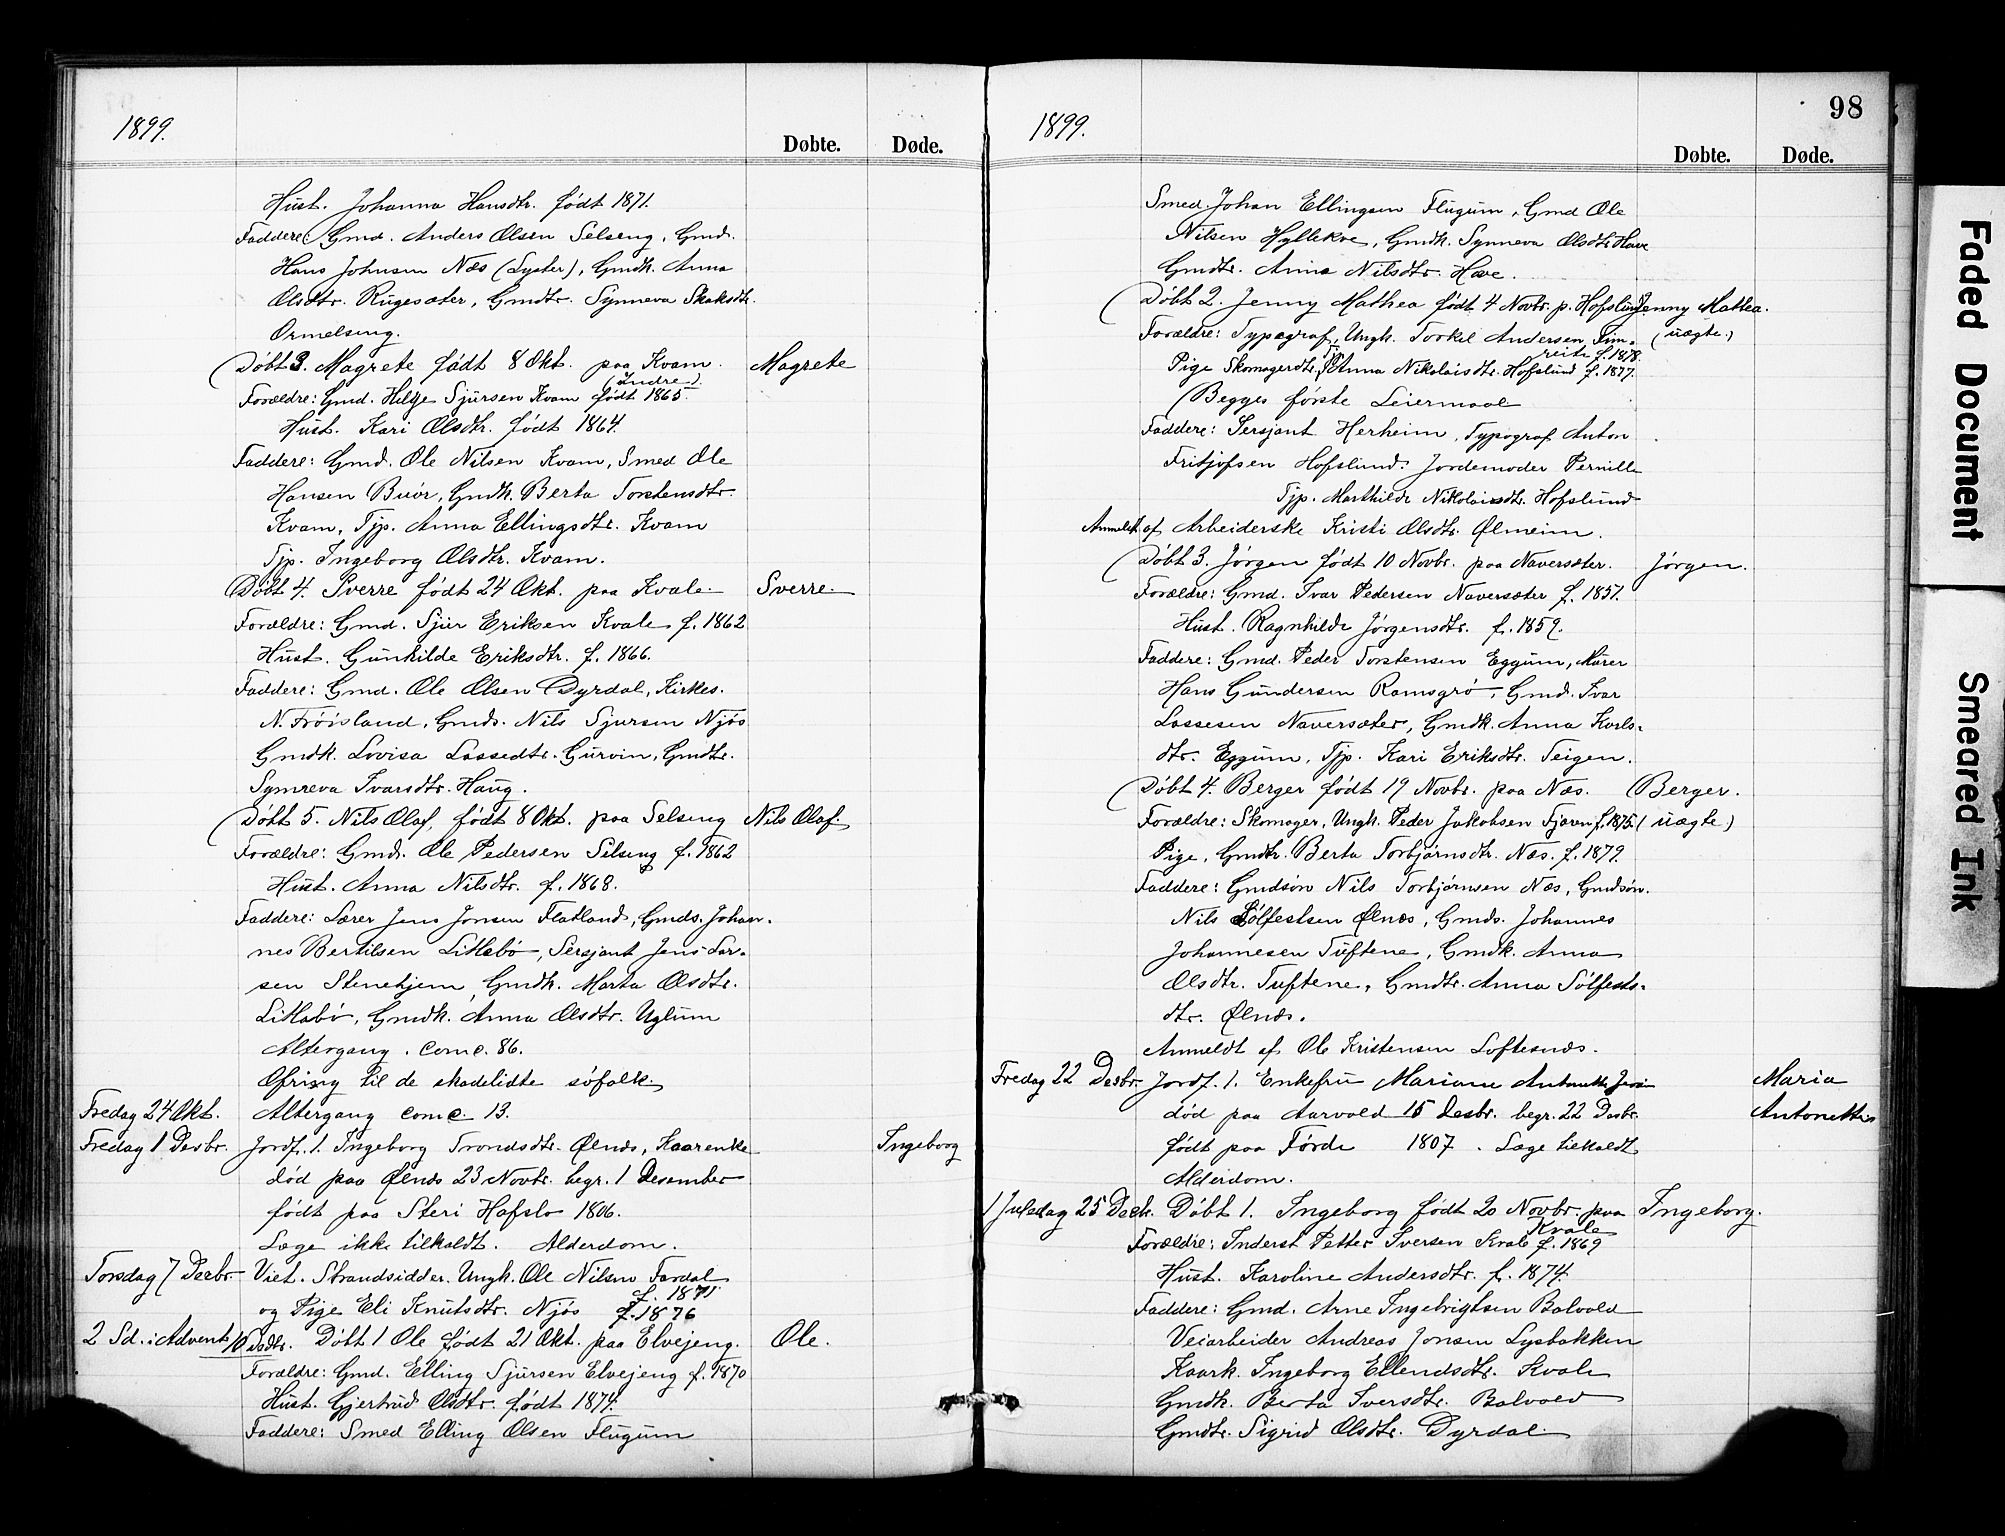 1899.
Døbte. Døde.
Hust. Johanna Hansdtr. født 1871.
Faddere: Gmd. Anders Olsen Selseng, Gmd.
Hans Johnsen Næs (Lyster), Gmdk. Anna
Olsdtr. Rugesæter, Gmdtr. Synneva Skaksdtr.
Ormelseng.
Døbt 3. Magrete født 8 Okt. paa Kvam. Magrete
(Indre)
Forældre: Gmd. Helje Sjursen Kvam født 1865.
Hust. Kari Olsdtr. født 1864.
Faddere: Gmd. Ole Nilsen Kvam, Smed Ole
Hansen Buór, Gmdk. Berta Torstensdtr.
Kvam, Tjp. Anna Ellingsdtr. Kvam
Tjp. Ingeborg Olsdtr. Kvam.
Døbt 4. Sverre født 24 Okt. paa Kvale. Sverre.
Forældre: Gmd. Sjur Eriksen Kvale f. 1862
Hust. Gunhilde Eriksdtr. f. 1866.
Faddere: Gmd. Ole Olsen Dyrdal, Kirkes.
N. Frøisland, Gmds. Nils Sjursen Njøs
Gmdk. Lovisa Lassedtr. Gurvin, Gmdtr.
Synneva Ivarsdtr. Haug.
Døbt 5. Nils Olaf, født 8 Okt. paa Selseng Nils Olaf
Forældre: Gmd. Ole Pedersen Selseng f. 1862
Hust. Anna Nilsdtr. f. 1868.
Faddere: Lærer Jens Jonsen Flatland, Gmds. Johan-
nes Bertilsen Litlabø, Sersjant Jens Lar-
sen Stenehjem, Gmdk. Marta Olsdtr.
Litlabø, Gmdk. Anna Olsdtr. Uglum
Altergang. Comc. 86.
Ofring til de skadelidte søfolk.
Fredag 24 Okt. Altergang comc. 13.
Fredag 1 Desbr. Jordf. 1. Ingeborg Trondsdtr. Ølnæs, Kaarenke Ingeborg
død paa Ølnæs 23 Novbr. begr. 1 Desember
født paa Steri Hafslo 1806.
Læge ikke tilkaldt. Alderdom.
Torsdag 7 Desbr. Viet. Strandsidder, Ungk. Ole Nilsen Fardal
f. 1871
og Pige Eli Knutsdtr. Njøs f. 1876
2 Sd. i Advent 10 Desbr. Døbt 1 Ole født 21 Okt. paa Elvejeng. Ole.
Forældre: Gmd. Elling Sjursen Elvejeng f. 1870
Hust. Gjertrud Olsdtr. født 1874.
Faddere: Smed Elling Olsen Flugum
98
1899.
Døbte. Døde.
Smed Johan Ellingsen Flugum, Gmd Ole
Nilsen Hyllekve, Gmdk. Synneva Olsdtr Have
Gmdtr. Anna Nilsdtr. Have.
Døbt 2. Jenny Mathea født 4 Novbr. p. Hofslund Jenny Mathea.
Forældre: Typograf, Ungk. Torkel Andersen Fim- (uægte.)
reite f. 1878.
Pige Skomagerdtr. Anna Nikolaisdtr. Hofslund f. 1877.
(Begges første Leiermaal
Faddere: Sersjant Herheim, Typograf Anton
Fritjofsen Hofslund. Jordemoder Pernille
Tjp. Marthilde Nikolaisdtr. Hofslund
Anmeldt af Arbeiderske Kristi Olsdtr. Ølmeim.
Døbt 3. Jørgen født 10 Novbr. paa Naversæter. Jørgen.
Forældre: Gmd. Ivar Pedersen Naversæter f. 1851.
Hust. Ragnhilde Jørgensdtr. f. 1859.
Faddere: Gmd. Peder Torstensen Eggum, Murer
Hans Gundersen Ramsgrø, Gmd. Ivar
Lassesen Naversæter, Gmdk. Anna Karls-
dtr. Eggum, Tjp. Kari Eriksdtr. Teigen.
Døbt 4. Berger født 19 Novbr. paa Næs. Berger.
Forældre: Skomager, Ungk. Peder Jakobsen Fjæren f. 1875. (uægte)
Pige, Gmdtr. Berta Torbjørnsdtr. Næs. f. 1879.
Faddere: Gmdsøn Nils Torbjørnsen Næs, Gmdsøn.
Nils Sølfestsen Ølnæs, Gmds. Johannes
Johannesen Tuftene, Gmdk. Anna
Olsdtr. Tuftene, Gmdtr. Anna Sølfests-
dtr. Ølnæs.
Anmeldt af Ole Kristensen Loftesnæs.
Fredag 22 Desbr. Jordf. 1. Enkefru Mariane Antonette Maria
død paa Aarvold 15 Desbr. begr. 22 Desbr. Antonette
født paa Førde 1807. Læge tilkaldt
Alderdom.
1 Juledag 25 Desb. Døbt 1. Ingeborg født 20 Novbr. paa Ingeborg.
Kvale
Forældre: Inderst Petter Iversen Kvale f. 1869
Hust. Karoline Andersdtr. f. 1874.
Faddere: Gmd. Arne Ingebrigtsen Bolvold
Veiarbeider Andreas Jonsen Lysbakken
Kaark. Ingeborg Ellendsdtr. Kvale
Gmdk. Berta Iversdtr. Bolvold
Gmdtr. Sigrid Olsdtr. Dyrdal.
Faded Document
Smeared Ink